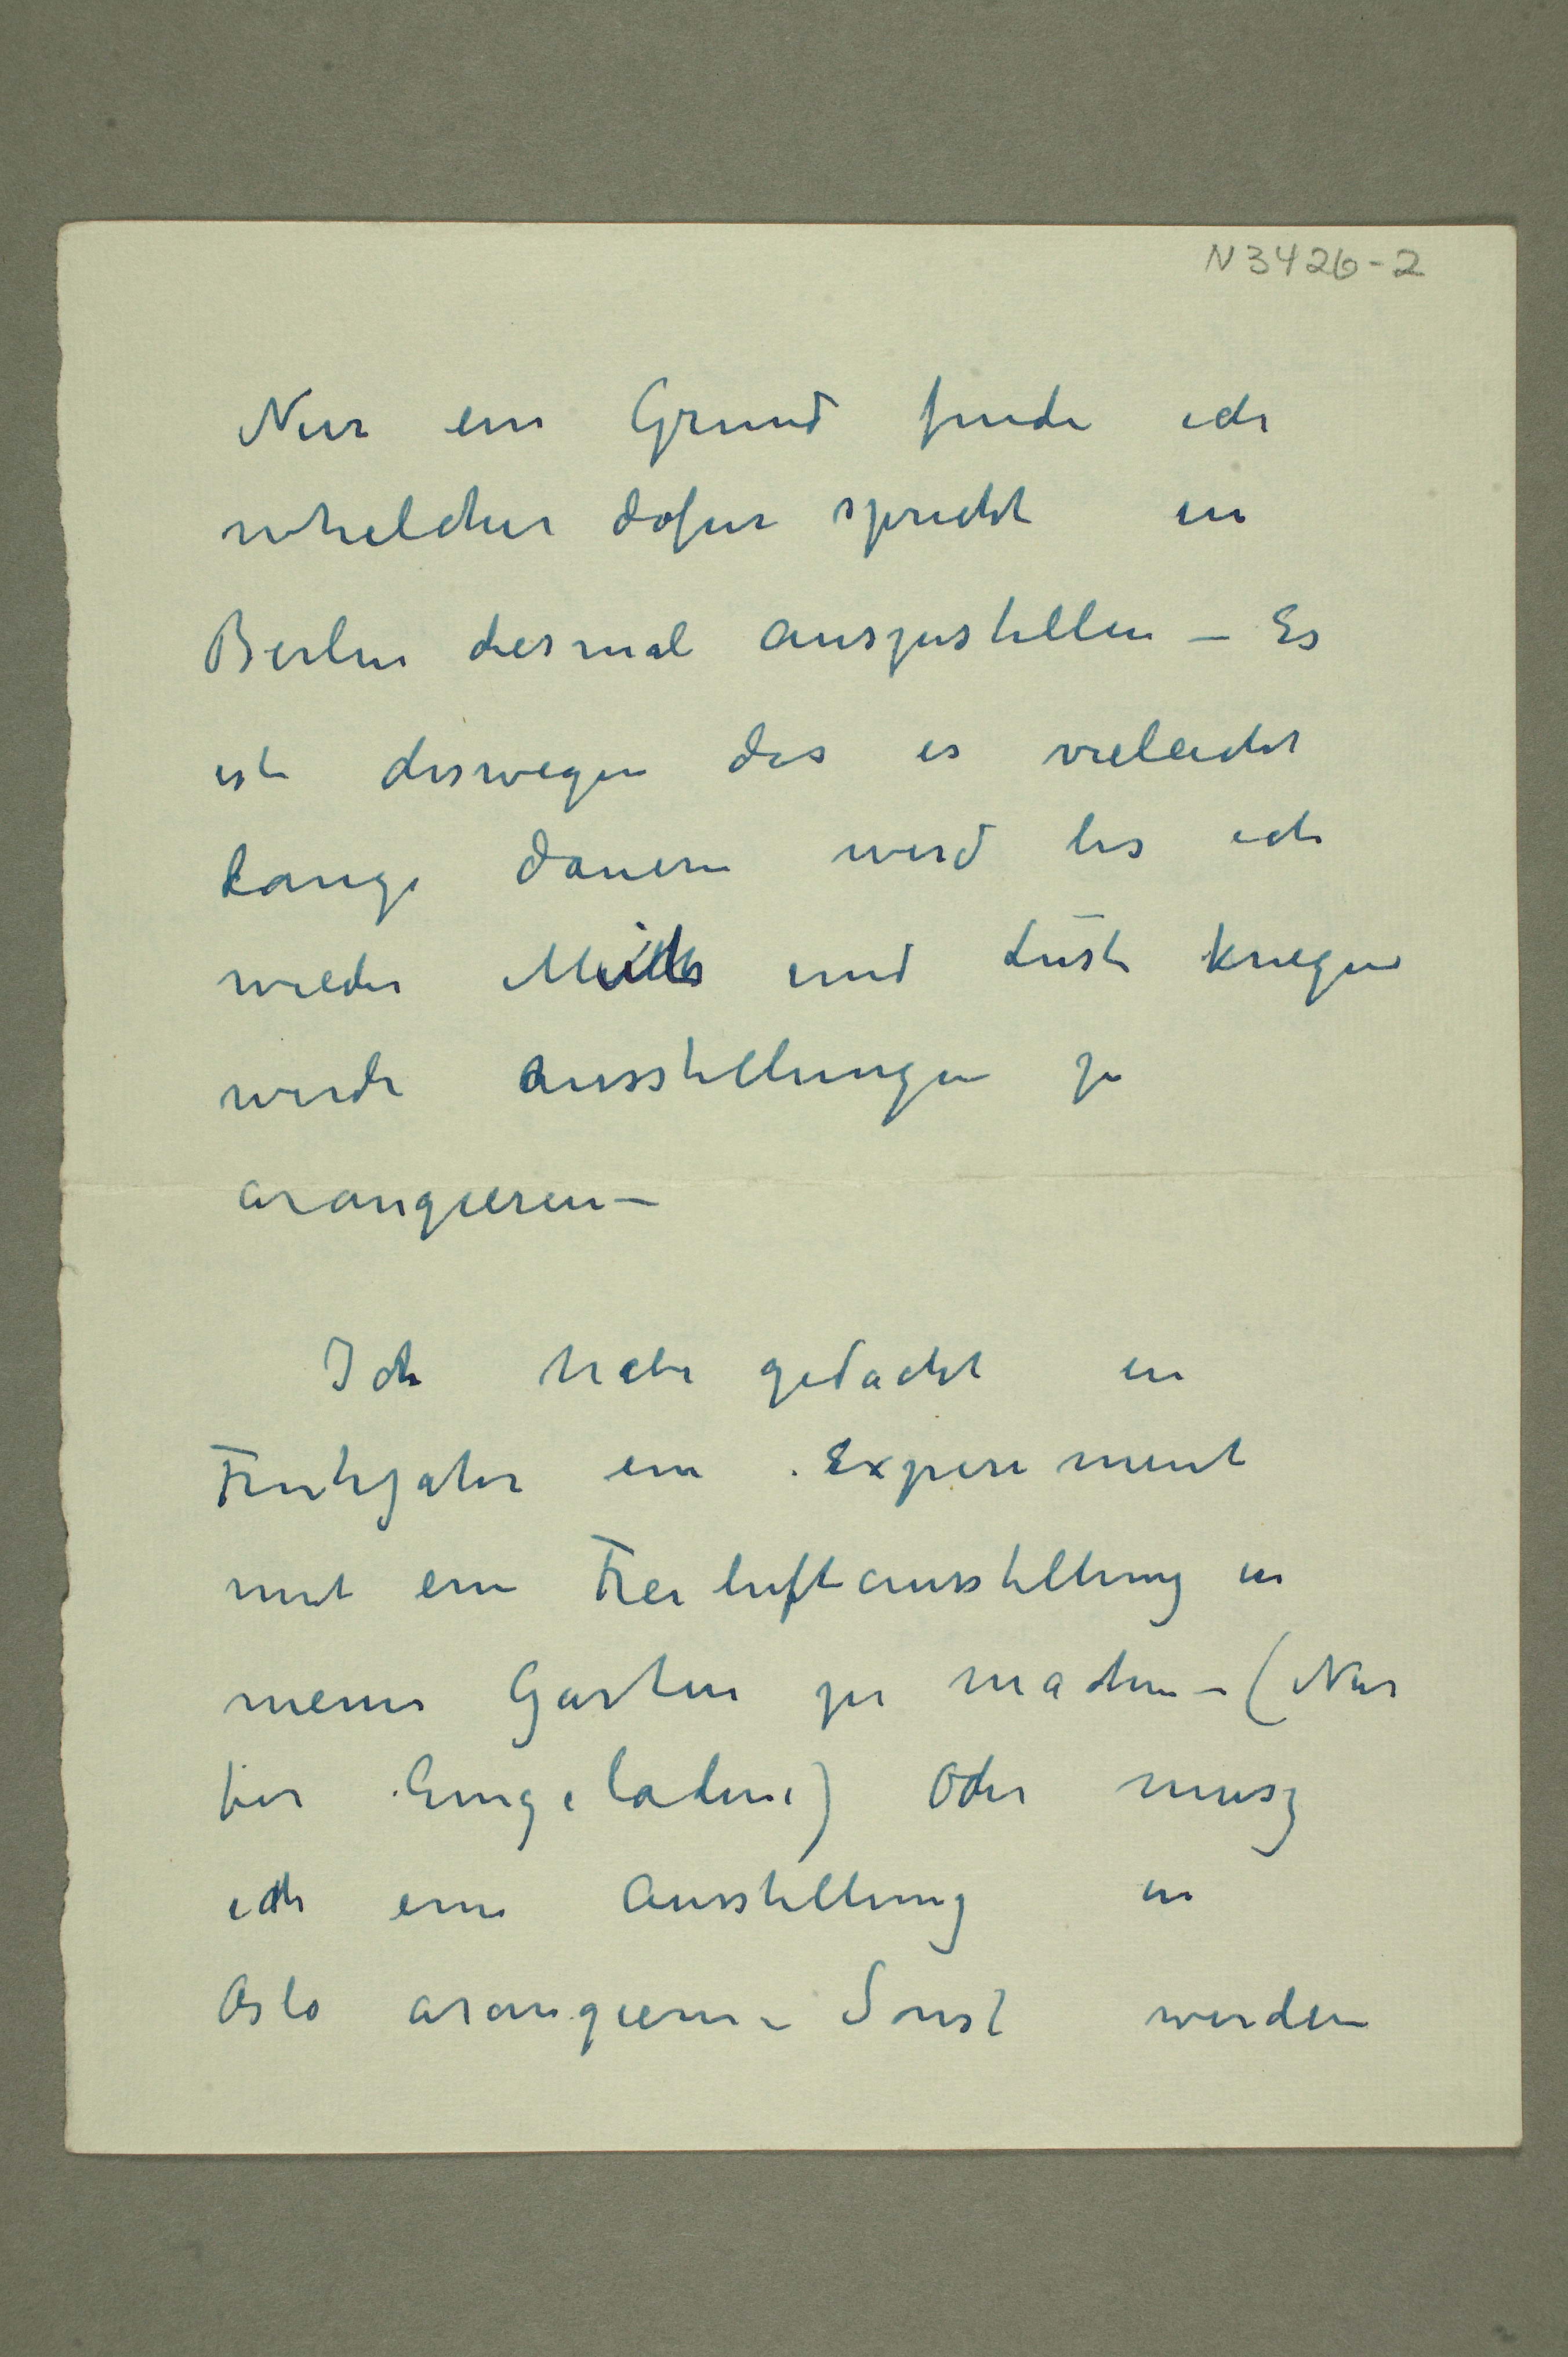 N 3426-2
Nur ein Grund finde ich
whelcher dafur spricht in
Berlin diesmal auszustellen – Es
ist deswegen das es vieleicht
lange dauern wird bis ich
wieder und Lust kriegen
werde ausstellungen zu
arangieren –
Ich habe gedacht in
Fruhjahr ein Experiment
mit ein Freiluftausstellung in
meine Garten zu machen – (Nur
fur Eingeladene) Oder musz
ich eine Ausstellung in
Oslo arangieren – Sonst werden